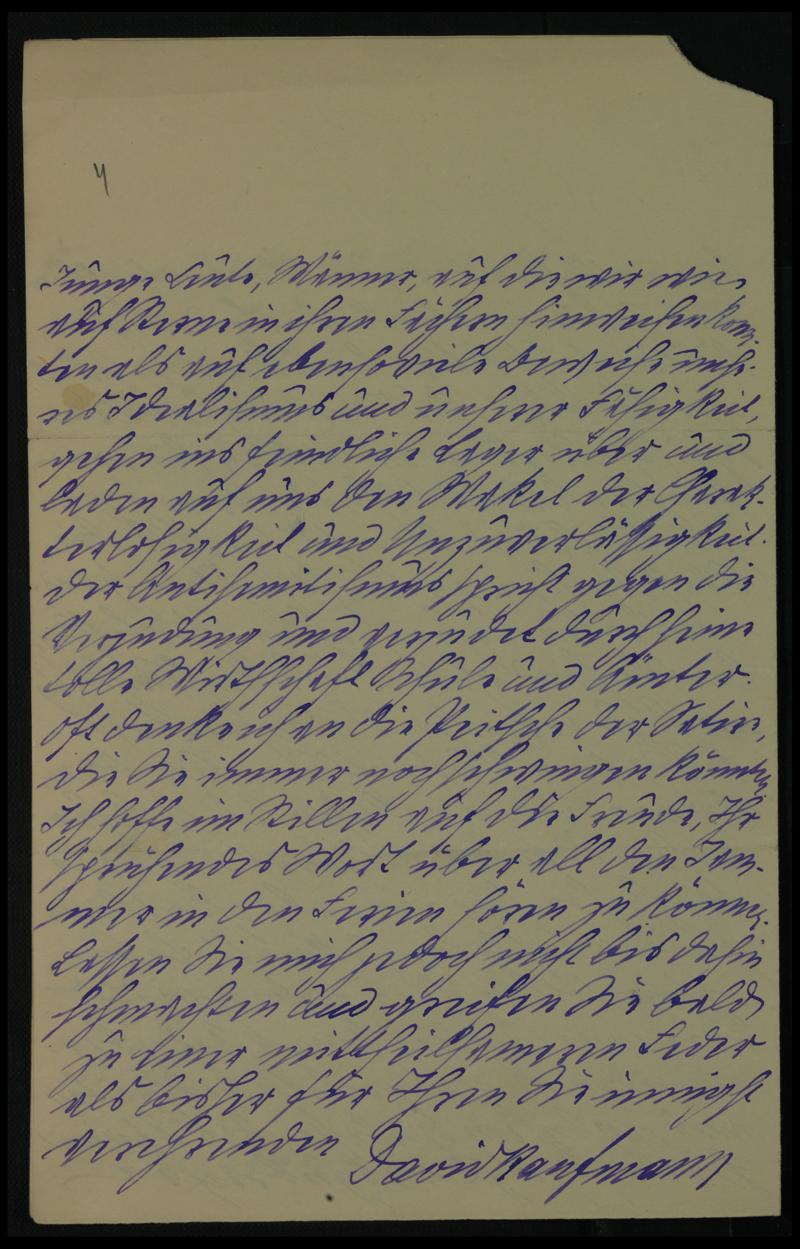 4
Junge Leute, Männer, auf die wir wie
auf Sterne in ihren Fächern hinweisen konn-
ten als auf ebensoviele Beweise unse-
res Idealismus und unserer Fähigkeit,
gehen ins feindliche Lager über und
laden auf uns den Makel der Charak-
terlosigkeit und Unzuverlässigkeit.
Der Antisemitismus spricht gegen die
Verjudung und verjudet durch seine
tolle Wirthschaft Schule und Ämter.
Oft denke ich an die Peitsche der Satire,
die Sie immer noch schwingen könnten.
Ich hoffe im Stillen auf die Freude, Ihr
sprühendes Wort über all den Jam-
mer in den Ferien hören zu können.
Lassen Sie mich jedoch nicht bis dahin
schmachten und greifen Sie bald
zu einer mittheilsameren Feder
als bisher für Ihren Sie innigst
verehrenden David Kaufmann